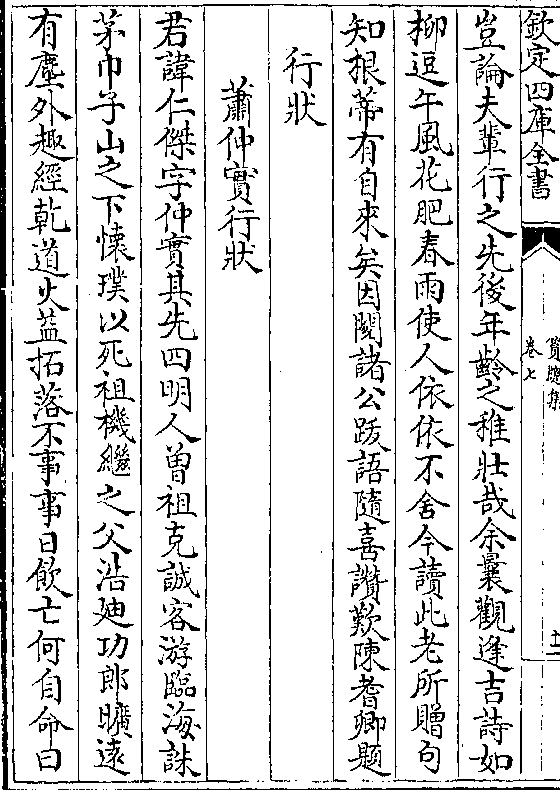 欽定四庫全書
篔牕集
卷七
十二
豈論夫輩行之先後年齡之稚壯哉余曩觀逢吉詩如
柳逗午風花肥春雨使人依依不舍今讀此老所贈句
知根蒂有自來矣因閱諸公跋語隨喜讚歎陳耆卿題
行狀
蕭仲實行狀
君諱仁傑字仲實其先四明人曽祖克誠客游臨海誅
茅巾子山之下懷璞以死祖機繼之父浩廸功郎曠逺
有塵外趣經乾道火益拓落不事事日飲亡何自命曰